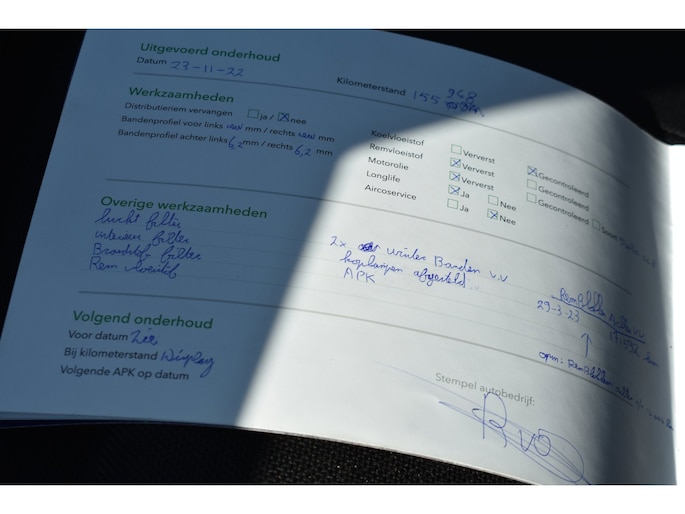 Uitgevoerd onderhoud
Datum 23-11-22
Kilometerstand 155 968
Werkzaamheden
Distributieriem vervangen ja / nee
Bandenprofiel voor links mm / rechts mm
Bandenprofiel achter links 6,2 mm / rechts 6,2 mm
Koelvloeistof Ververst Gecontroleerd
Remvloeistof Ververst Gecontroleerd
Motorolie Ververst Gecontroleerd Soort
Longlife Ja Nee
Aircoservice Ja Nee
Overige werkzaamheden
lucht filter
interieur filter
Brandstof filter
Rem vloeistof
2x winter Banden v.v
koplampen afgesteld
APK
29-3-23
Volgend onderhoud
Voor datum Zie
Bij kilometerstand Display
Volgende APK op datum
Stempel autobedrijf: